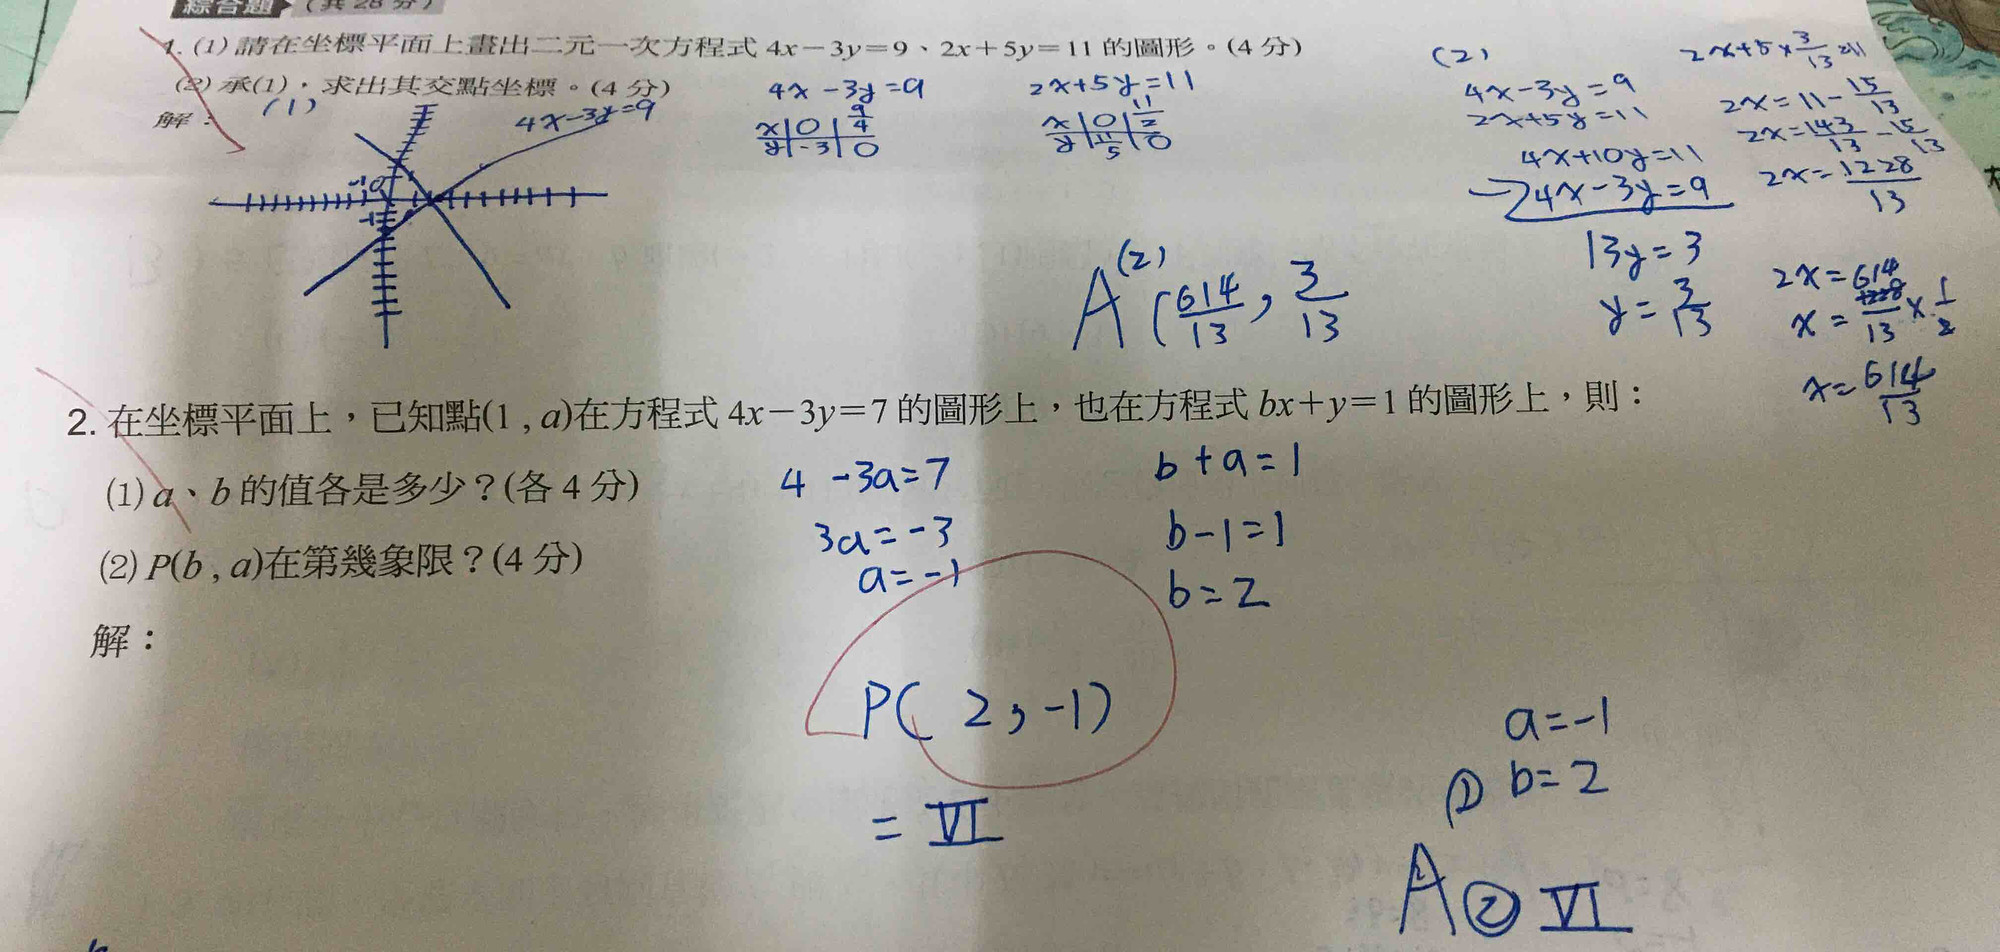 綜合題 (共28分)
1. (1) 請在坐標平面上畫出二元一次方程式 4x－3y＝9、2x＋5y＝11 的圖形。(4 分)
(2) 承(1)，求出其交點坐標。(4 分)
解：
(1)
4x-3y=9
-1 0
-1
4x-3y=9
x | 0 | 9/4
y | -3 | 0
2x+5y=11
x | 0 | 11/2
y | 11/5 | 0
(2)
4x-3y=9
2x+5y=11
4x+10y=11
-) 4x-3y=9
13y=3
y=3/13
2x+5×3/13=11
2x=11-15/13
2x=143/13-15/13
2x=1228/13
2x=614
x=1228/13×1/2
x=614/13
A (2) (614/13, 3/13
2. 在坐標平面上，已知點(1 , a)在方程式 4x－3y＝7 的圖形上，也在方程式 bx＋y＝1 的圖形上，則：
(1) a、b 的值各是多少？(各 4 分)
(2) P(b , a)在第幾象限？(4 分)
解：
4-3a=7
3a=-3
a=-1
b+a=1
b-1=1
b=2
P( 2, -1)
= VI
a=-1
① b=2
A ② VI